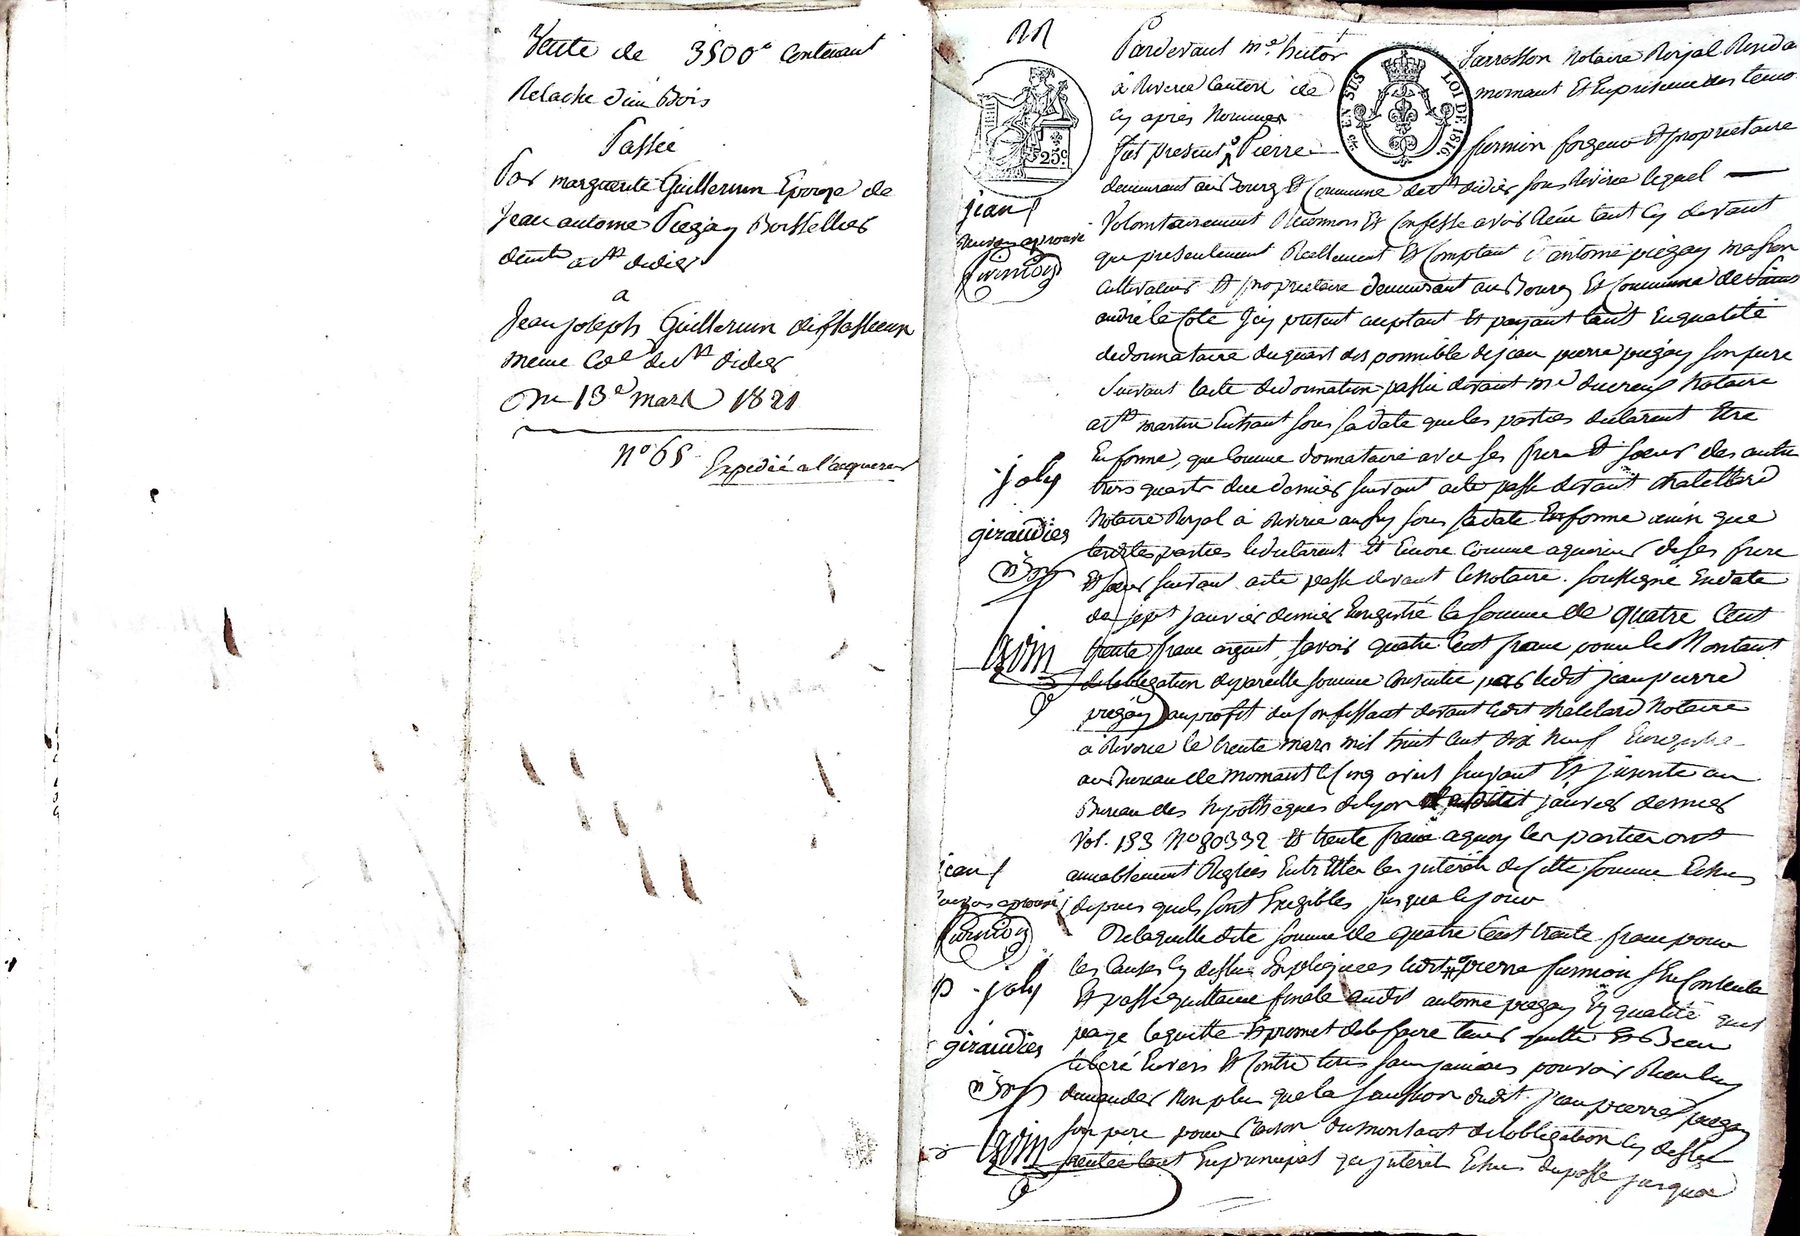 Vente de 3500f contenant
Relache d'un Bois
Passée
Par marguerite Guillermin Epouse de
Jean antoine Piegay Boisselier
demt a St didier
a
Jean joseph Guillermin de
meme Cne de St didier
Du 13e mars 1821
N° 65 Expedié a l'acquereur
Pardevant Me hector Jarrosson Notaire Royal Resida
à Riverie Canton de mornant Et En présence des temo
Cy après Nommés
25c
EN SUS LOI DE 1816
fut présent Pierre furmion forgeur Et proprietaire
demeurant au Bourg Et Commune de St didier sous Riverie lequel
jean
Volontairement Reconnoit Et Confesse avoir Reçu tant Cy devant
que présentement Réellement Et Comptant d'antoine piégay maçon
cultivateur Et proprietaire demeurant au Bourg Et Commune de Saint
andré la Côte Icy présent acceptant Et payant tant En qualité
de donnataire du quart disponnible de jean pierre piégay son pere
Suivant l'acte de donnation passé devant me ducreux Notaire
a St martin Sous Sa date que les parties déclarent Etre
En forme, que Comme donnataire avec ses frere Et sœur des autre
joly
trois quarts du dernier suivant acte passé devant chatellard
giraudier
Notaire Royal à Riverie aussy sous sa date En forme ainsi que
lesdites parties le déclarent Et Encore Comme aquereur de ses frere
Et sœur suivant acte passé devant le Notaire soussigné En date
de sept janvier dernier Enregistré la somme de quatre Cent
trente franc argent, savoir quatre Cent franc pour le Montant
de lobligation de pareille somme Consentie par ledit jean pierre
piegay au profit du Confessant devant ledit chatelard Notaire
à Riverie le trente mars mil huit Cent dix Neuf Enregistré
au Bureau de mornant le cinq avril suivant Et inscrite au
Bureau des hypothèques de lyon le janvier dernier
Vol. 153 N° 80332 Et trente franc a quoy les parties ont
jean
amiablement Réglées Entr'Elles les intérêts de cette somme Echus
depuis quils sont Exigibles jusqua ce jour
De laquelle dite somme de quatre Cent trente franc pour
les Causes Cy dessus Expliquées ledit pierre furmion sen Contente
p. joly
Et passe quittance finale audit antoine piegay En qualité quil
giraudier
paye lequitte Et promet de le faire tenir quitte Et Bien
libéré Envers Et Contre tous sans jamais pouvoir Rien luy
demander Non plus que la succession dudit jean pierre piegay
son pere pour Raison du montant de lobligation Cy dessus
tant En principal qu'interêt Echus du passé jusqua